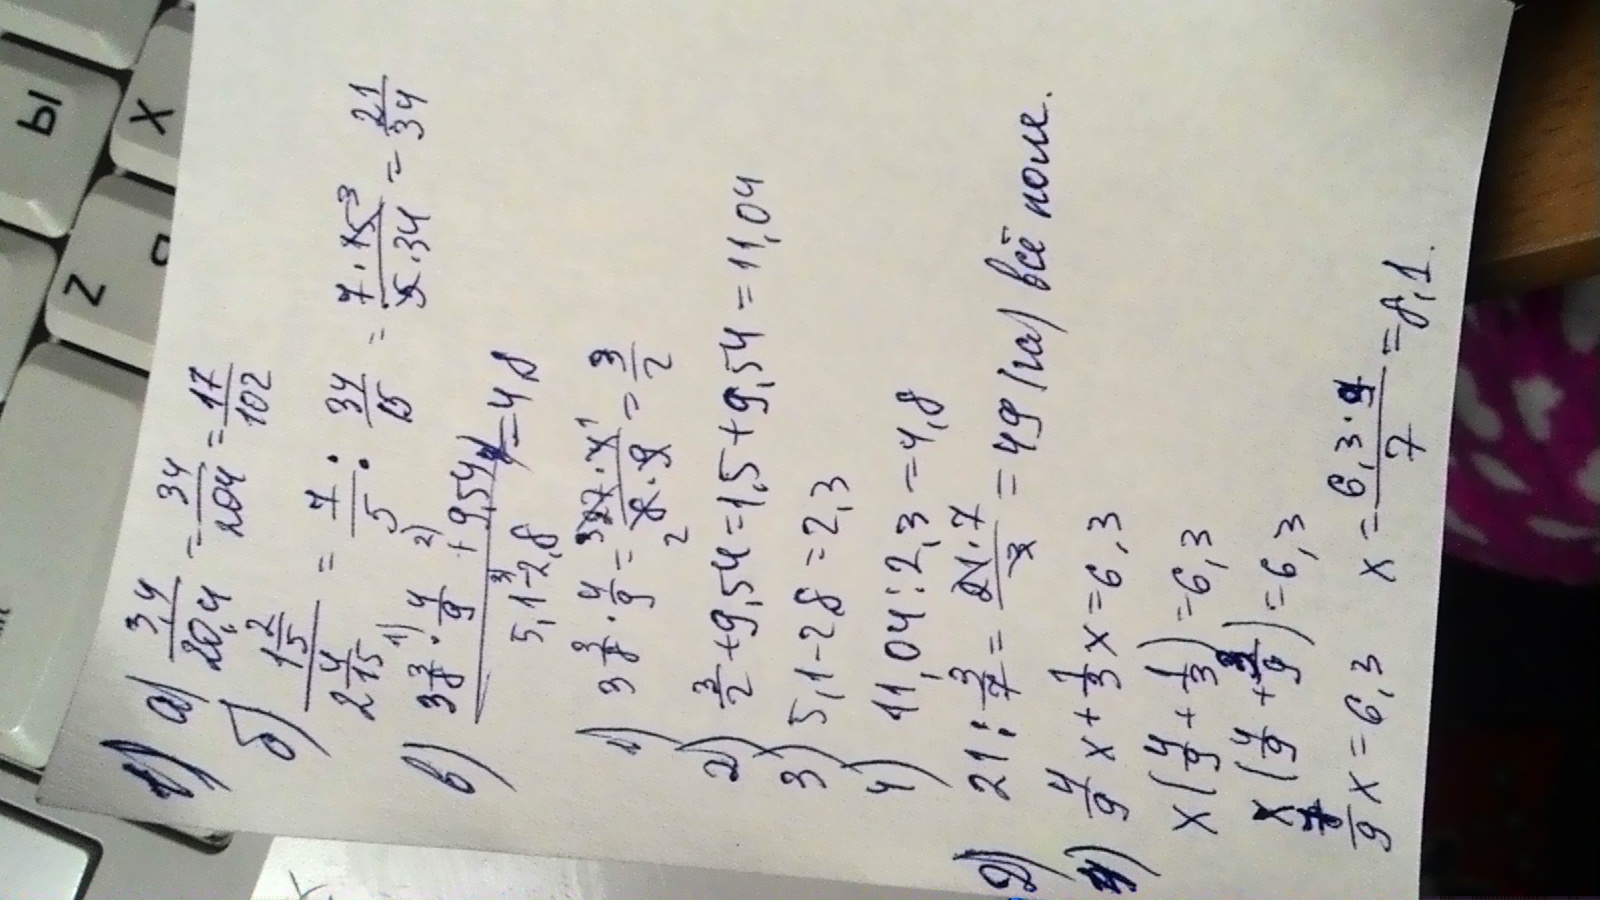 1) а) 3,4/20,4 = 34/204 = 17/102
б) 1 2/5 / 2 4/15 = 7/5 : 34/15 = 7·15³/5·34 = 21/34
в) 3 3/8 ·¹⁾ 4/9 +²⁾ 9,54 / 5,1 -³⁾ 2,8 = 4,8
1) 3 3/8 · 4/9 = ³27·4¹/₂8·9 = 3/2
2) 3/2 + 9,54 = 1,5 + 9,54 = 11,04
3) 5,1 - 2,8 = 2,3
4) 11,04 : 2,3 = 4,8
2) 21 : 3/7 = 21·7/3 = 49 (га) всё поле.
4/9 x + 1/3 x = 6,3
x (4/9 + 1/3) = 6,3
x (4/9 + 3/9) = 6,3
7/9 x = 6,3 x = 6,3·9/7 = 8,1.
Ы
X
Z